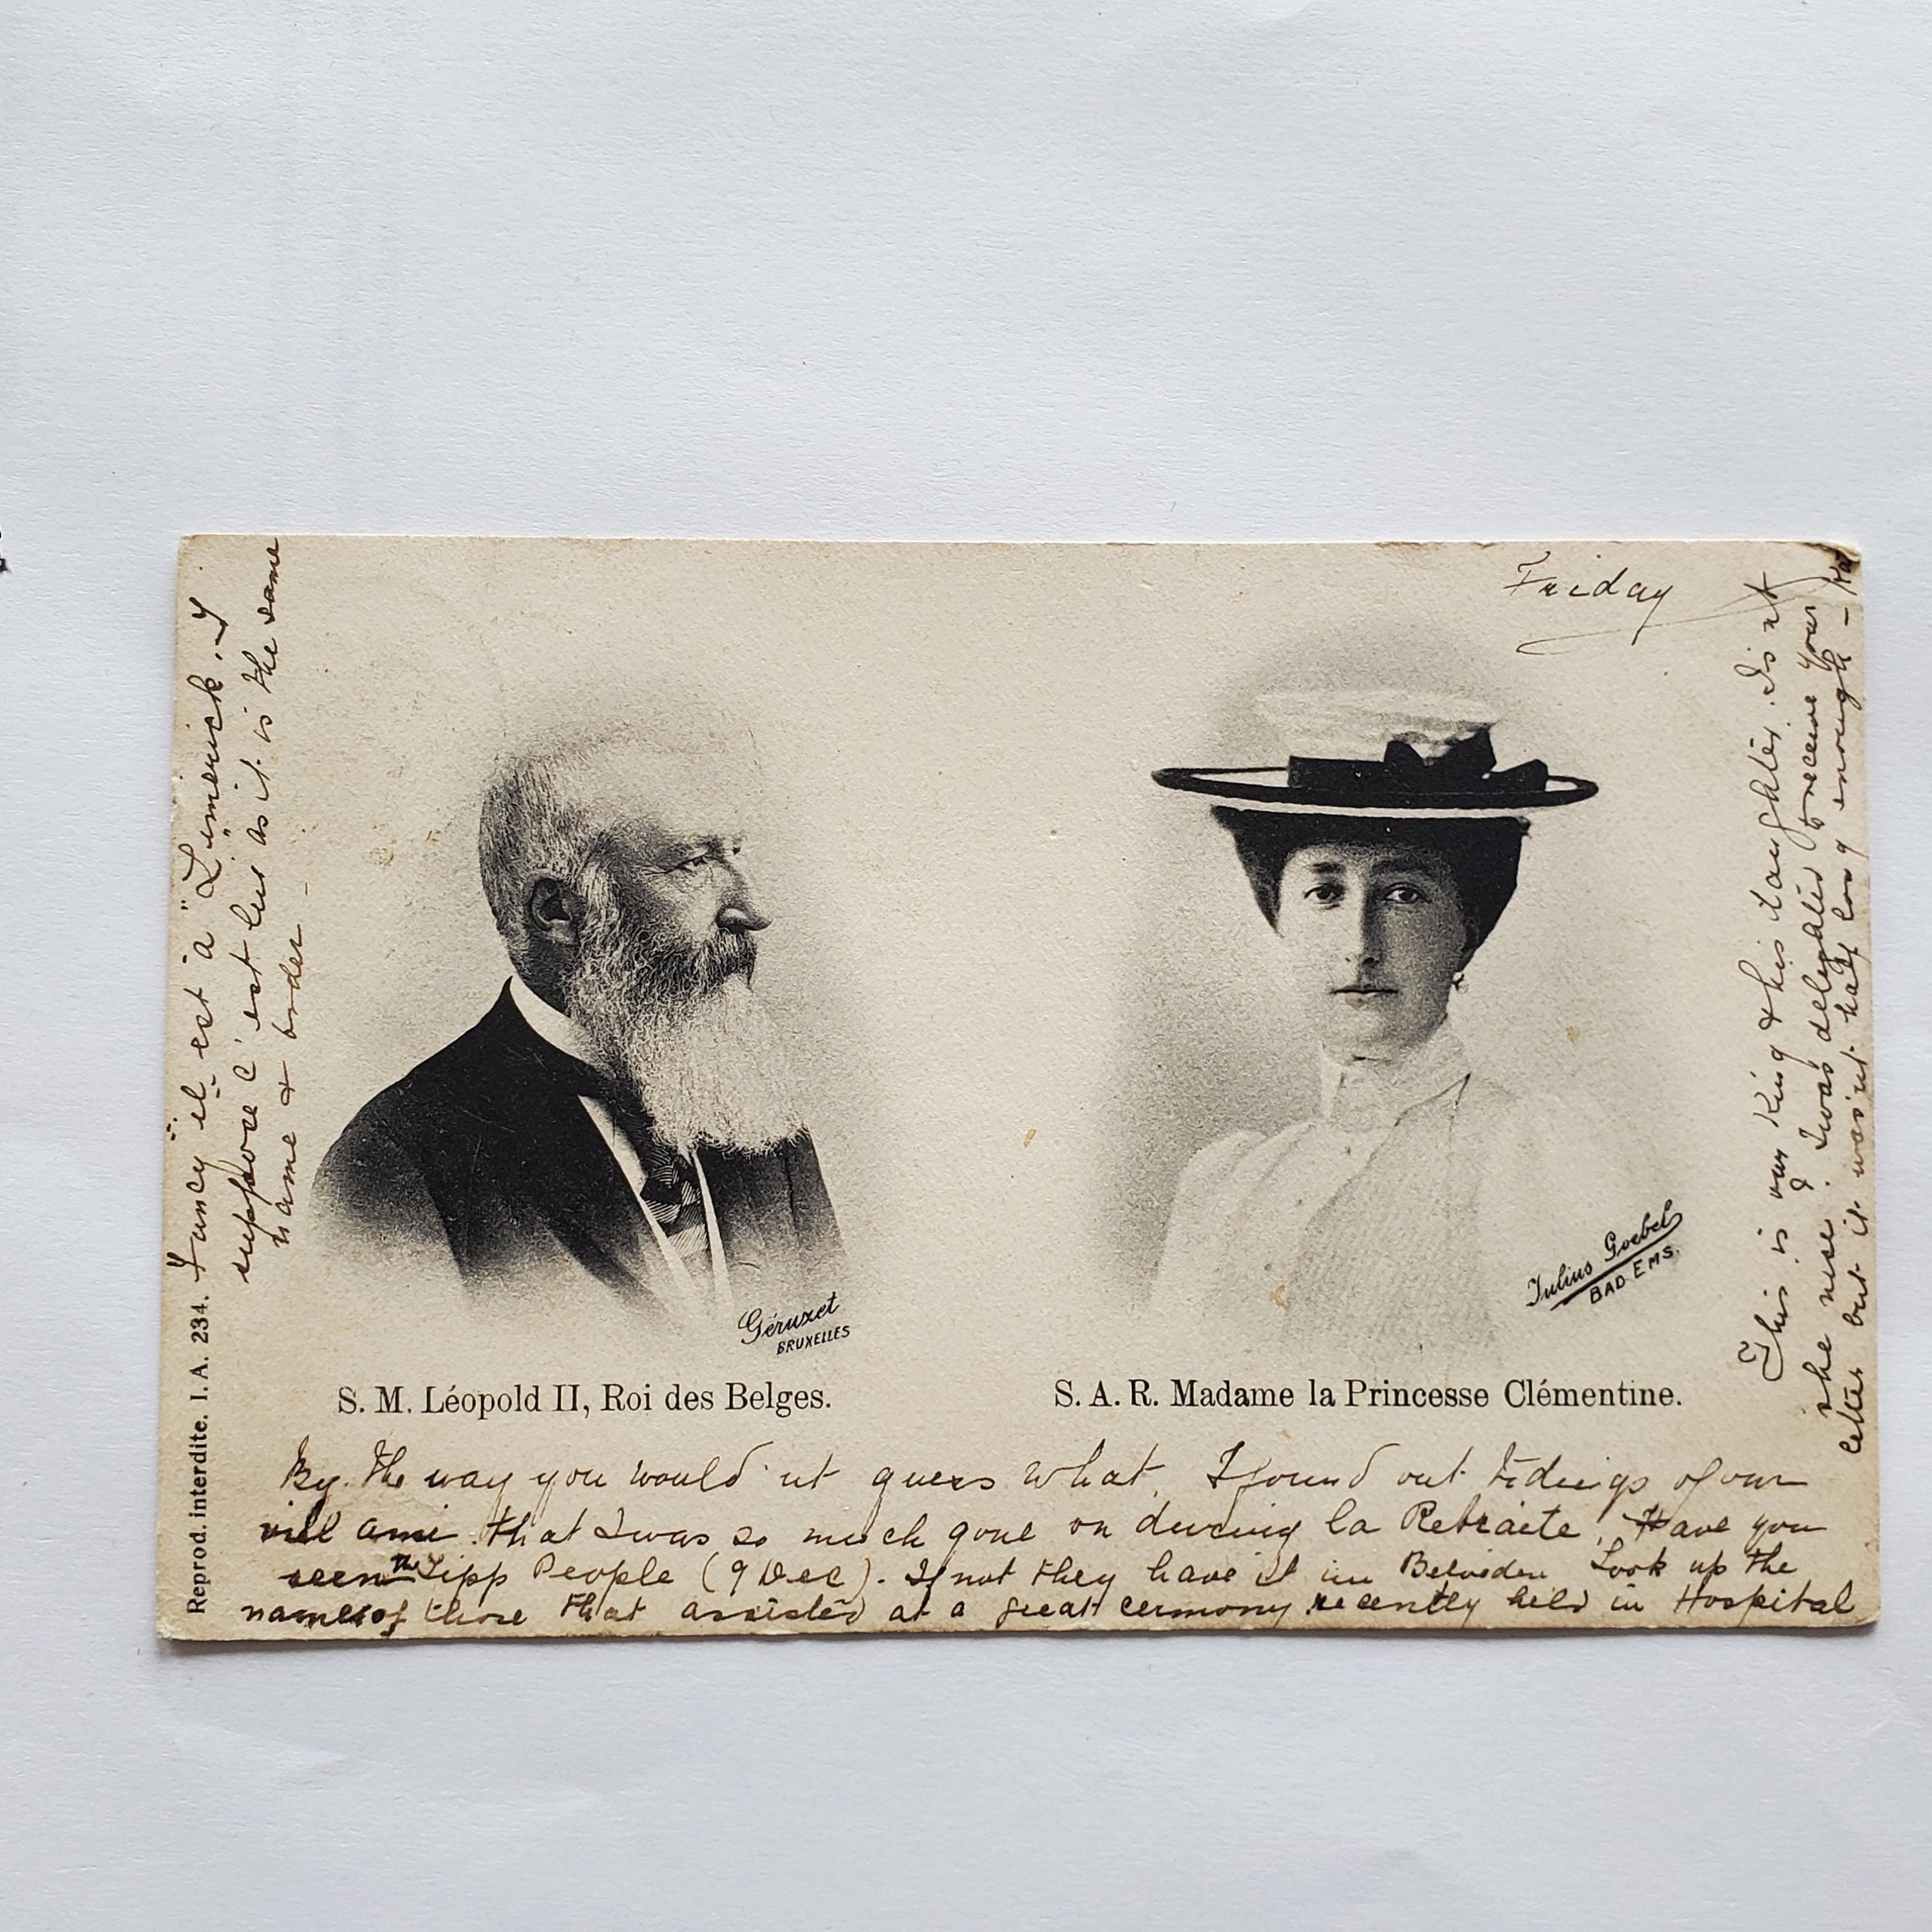 Friday
This is our King & his daughter. Is nt
she nice? I was delighted to receive your
letter but it was'nt half long enough -
Géruzet
BRUXELLES
Julius Goebel
BAD EMS.
S. M. Léopold II, Roi des Belges.
S. A. R. Madame la Princesse Clémentine.
By the way you would'nt guess what. I found out tidings of our
ami that I was so much gone on during la Retraite. Have you
seen the Tipp People (9 Dec). If not they have it in Look up the
names of those that assisted at a great cermony recently held in Hospital
Fancy il est à "Limerick". I
suppose c'est lui as it is the same
name & order -
Reprod. interdite. I. A. 234.